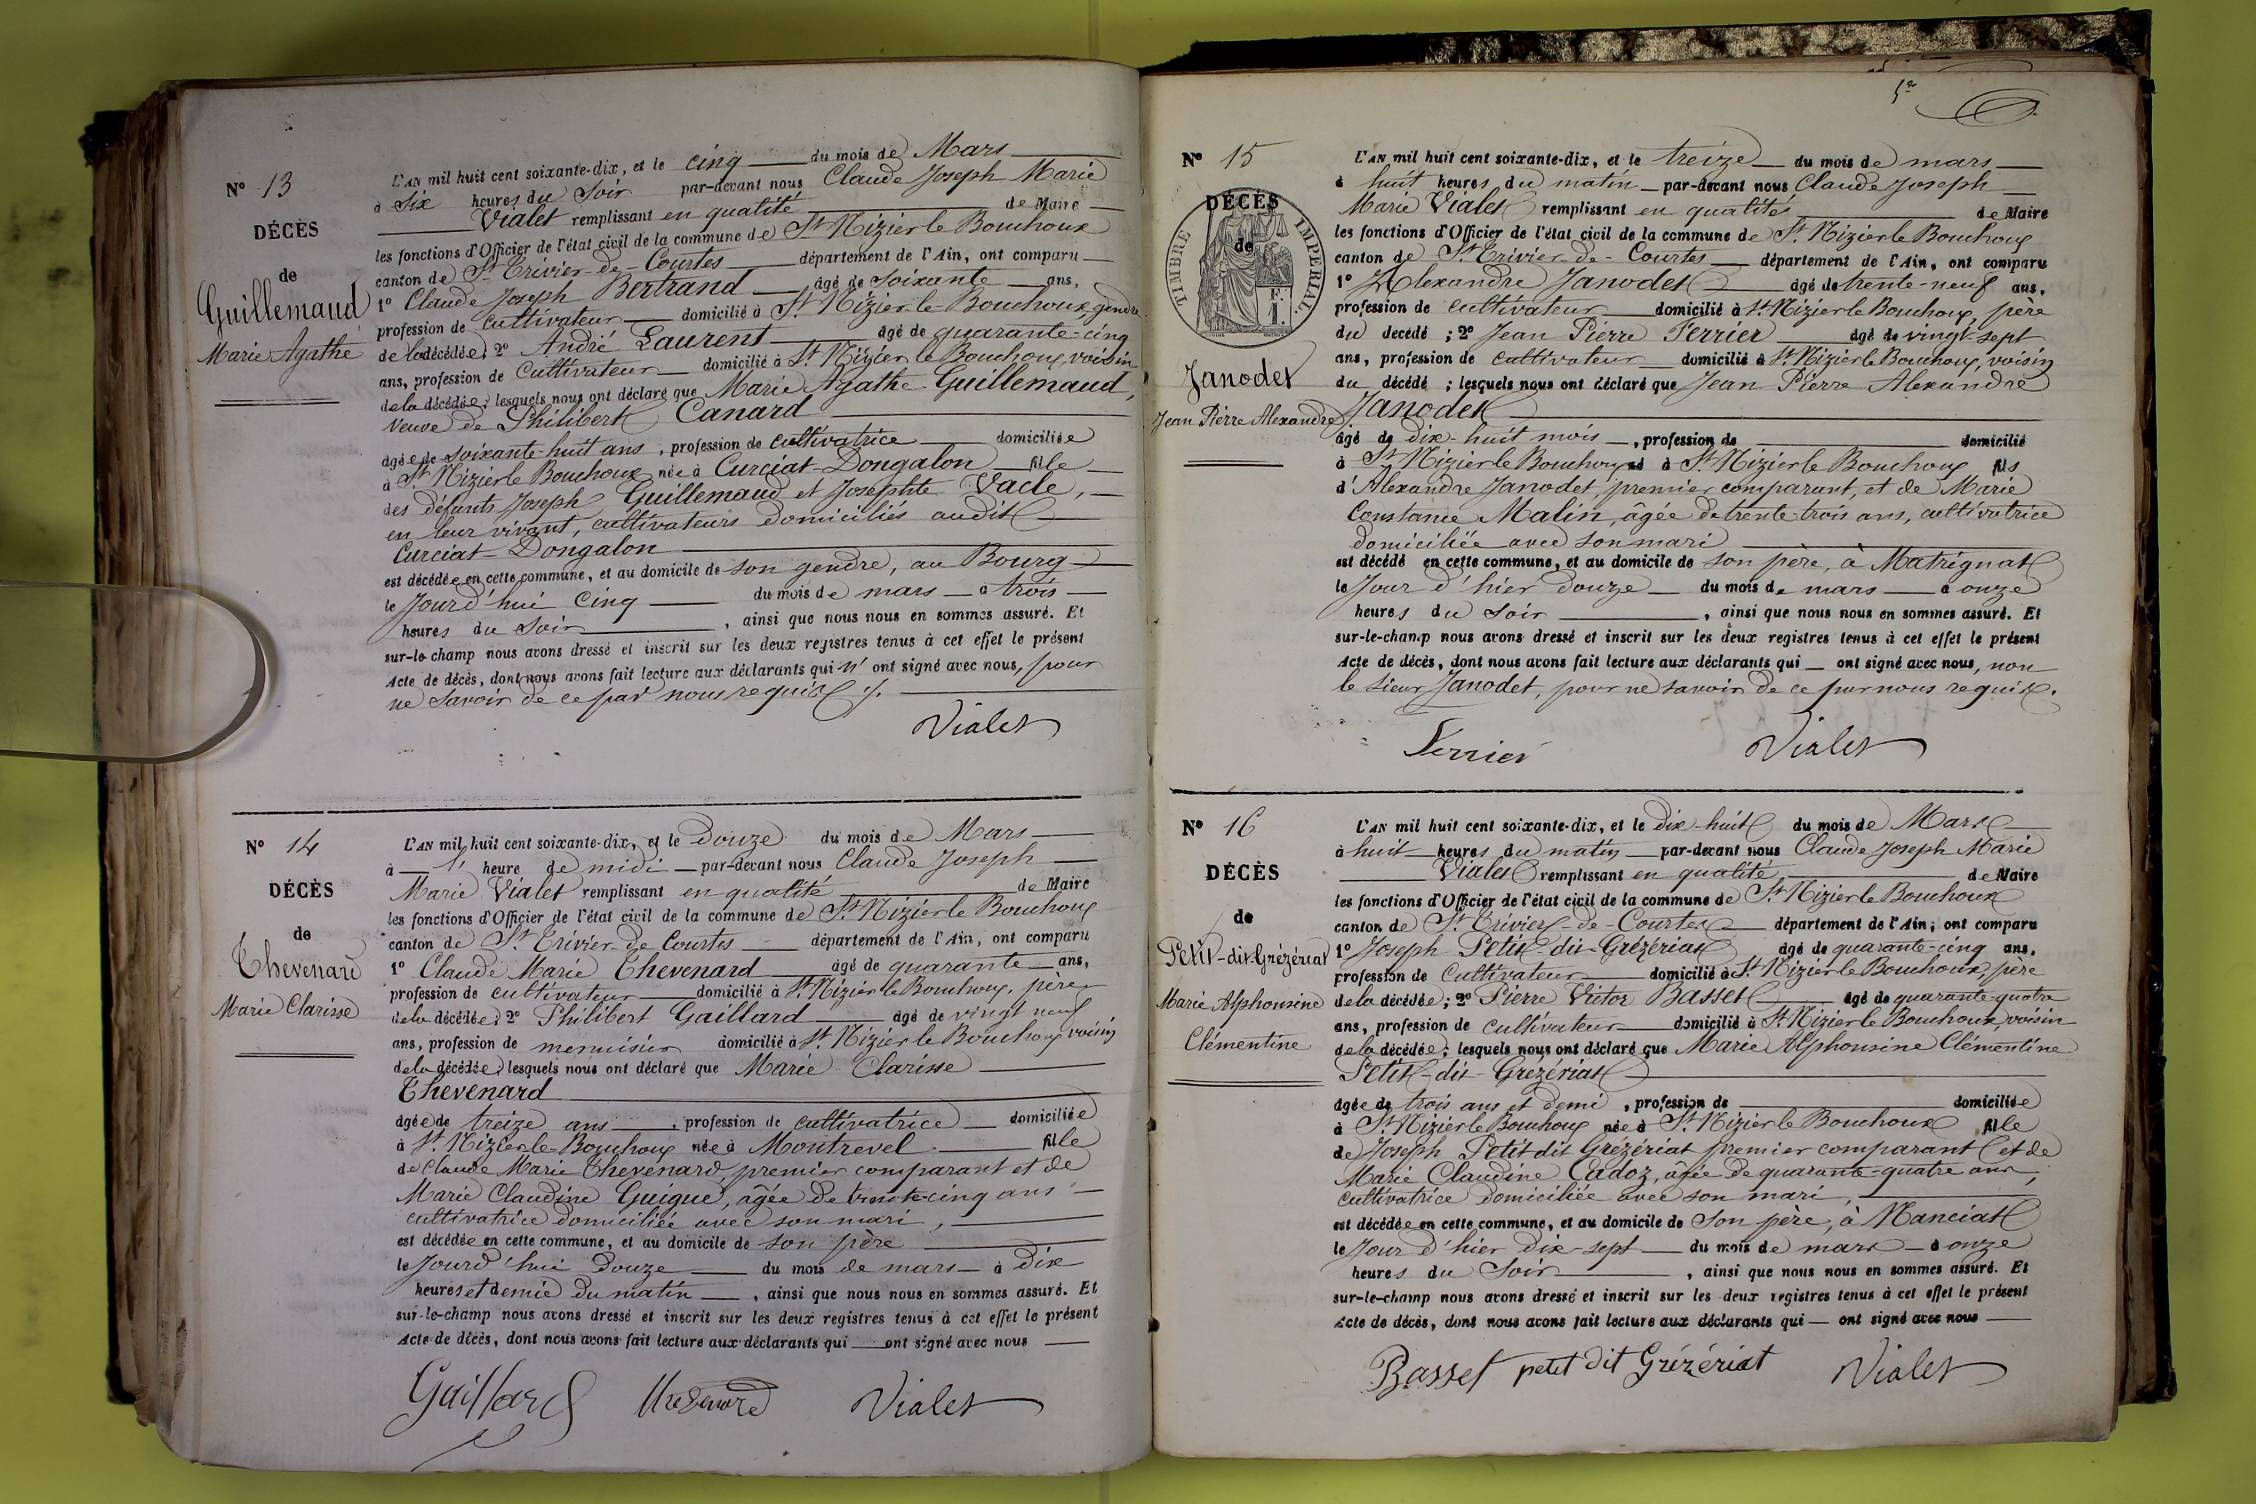 N° 13
DÉCÈS
de
Guillemaud
Marie Agathe
L'AN mil huit cent soixante-dix, et le cinq du mois de Mars
à six heures du Soir par-devant nous Claude Joseph Marie
Vialet remplissant en qualité de Maire
les fonctions d'Officier de l'état civil de la commune de St Nizier le Bouchoux
canton de St Trivier-de-Courtes département de l'Ain, ont comparu
1° Claude Joseph Bertrand âgé de soixante ans,
profession de cultivateur domicilié à St Nizier le Bouchoux, gendre
de la décédée; 2° André Laurent âgé de quarante-cinq
ans, profession de Cultivateur domicilié à St Nizier le Bouchoux, voisin
de la décédée; lesquels nous ont déclaré que Marie Agathe Guillemaud,
veuve de Philibert Canard
âgée de soixante-huit ans, profession de cultivatrice domiciliée
à St Nizier le Bouchoux née à Curciat-Dongalon fille
des défunts Joseph Guillemaud et Josephte Vacle,
en leur vivant, cultivateurs domiciliés audit
Curciat-Dongalon
est décédée en cette commune, et au domicile de son gendre, au Bourg
le Jourd'hui cinq du mois de mars à trois
heures du Soir, ainsi que nous nous en sommes assuré. Et
sur-le-champ nous avons dressé et inscrit sur les deux registres tenus à cet effet le présent
Acte de décès, dont nous avons fait lecture aux déclarants qui n'ont signé avec nous, pour
ne savoir de ce par nous requis ./.
Vialet
N° 14
DÉCÈS
de
Thevenard
Marie Clarisse
L'AN mil huit cent soixante-dix, et le douze du mois de Mars
à 1' heure de midi par-devant nous Claude Joseph
Marie Vialet remplissant en qualité de Maire
les fonctions d'Officier de l'état civil de la commune de St Nizier le Bouchoux
canton de St Trivier-de-Courtes département de l'Ain, ont comparu
1° Claude Marie Thevenard âgé de quarante ans,
profession de cultivateur domicilié à St Nizier le Bouchoux, père
de la décédée; 2° Philibert Gaillard âgé de vingt neuf
ans, profession de menuisier domicilié à St Nizier le Bouchoux voisin
de la décédée; lesquels nous ont déclaré que Marie Clarisse
Thevenard
âgée de treize ans, profession de cultivatrice domiciliée
à St Nizier-le-Bouchoux née à Montrevel fille
de Claude Marie Thevenard, premier comparant et de
Marie Claudine Guigue, âgée de trente-cinq ans
cultivatrice domiciliée avec son mari,
est décédée en cette commune, et au domicile de son père
le Jourd'hui douze du mois de mars à dix
heures et demie du matin, ainsi que nous nous en sommes assuré. Et
sur-le-champ nous avons dressé et inscrit sur les deux registres tenus à cet effet le présent
Acte de décès, dont nous avons fait lecture aux déclarants qui ont signé avec nous
Gaillard Thevenard Vialet
N° 15
DÉCÈS
de
TIMBRE IMPÉRIAL
F.
1.
Janodet
Jean Pierre Alexandre
L'AN mil huit cent soixante-dix, et le treize du mois de mars
à huit heures du matin par-devant nous Claude Joseph
Marie Vialet remplissant en qualités de Maire
les fonctions d'Officier de l'état civil de la commune de St Nizier le Bouchoux
canton de St Trivier-de-Courtes département de l'Ain, ont comparu
1° Alexandre Janodet âgé de trente-neuf ans,
profession de cultivateur domicilié à St Nizier le Bouchoux, père
du décédé; 2° Jean Pierre Ferrier âgé de vingt-sept
ans, profession de cultivateur domicilié à St Nizier le Bouchoux, voisin
du décédé; lesquels nous ont déclaré que Jean Pierre Alexandre
Janodet
âgé de dix-huit mois, profession de domicilié
à St Nizier le Bouchoux né à St Nizier le Bouchoux fils
d'Alexandre Janodet, premier comparant, et de Marie
Constance Malin, âgée de trente-trois ans, cultivatrice
domiciliée avec son mari
est décédé en cette commune, et au domicile de son père, à Matrignat
le Jour d'hier douze du mois de mars à onze
heures du Soir, ainsi que nous nous en sommes assuré. Et
sur-le-champ nous avons dressé et inscrit sur les deux registres tenus à cet effet le présent
Acte de décès, dont nous avons fait lecture aux déclarants qui ont signé avec nous, non
le Sieur Janodet, pour ne savoir de ce par nous requis.
Ferrier Vialet
N° 16
DÉCÈS
de
Petit-dit-Grézériat
Marie Alphonsine
Clémentine
L'AN mil huit cent soixante-dix, et le dix-huit du mois de Mars
à huit heures du matin par-devant nous Claude Joseph Marie
Vialet remplissant en qualité de Maire
les fonctions d'Officier de l'état civil de la commune de St Nizier le Bouchoux
canton de St Trivier-de-Courtes département de l'Ain, ont comparu
1° Joseph Petit-dit-Grézériat âgé de quarante-cinq ans,
profession de Cultivateur domicilié à St Nizier le Bouchoux, père
de la décédée; 2° Pierre Victor Basset âgé de quarante-quatre
ans, profession de cultivateur domicilié à St Nizier le Bouchoux, voisin
de la décédée; lesquels nous ont déclaré que Marie Alphonsine Clémentine
Petit-dit-Grézériat
âgée de trois ans et demi, profession de domiciliée
à St Nizier le Bouchoux née à St Nizier le Bouchoux fille
de Joseph Petit dit Grézériat premier comparant et de
Marie Claudine Cadoz, âgée de quarante-quatre ans,
cultivatrice domiciliée avec son mari,
est décédée en cette commune, et au domicile de son père, à Manciat
le Jour d'hier dix-sept du mois de mars à onze
heures du Soir, ainsi que nous nous en sommes assuré. Et
sur-le-champ nous avons dressé et inscrit sur les deux registres tenus à cet effet le présent
Acte de décès, dont nous avons fait lecture aux déclarants qui ont signé avec nous
Basset petit dit Grézériat Vialet